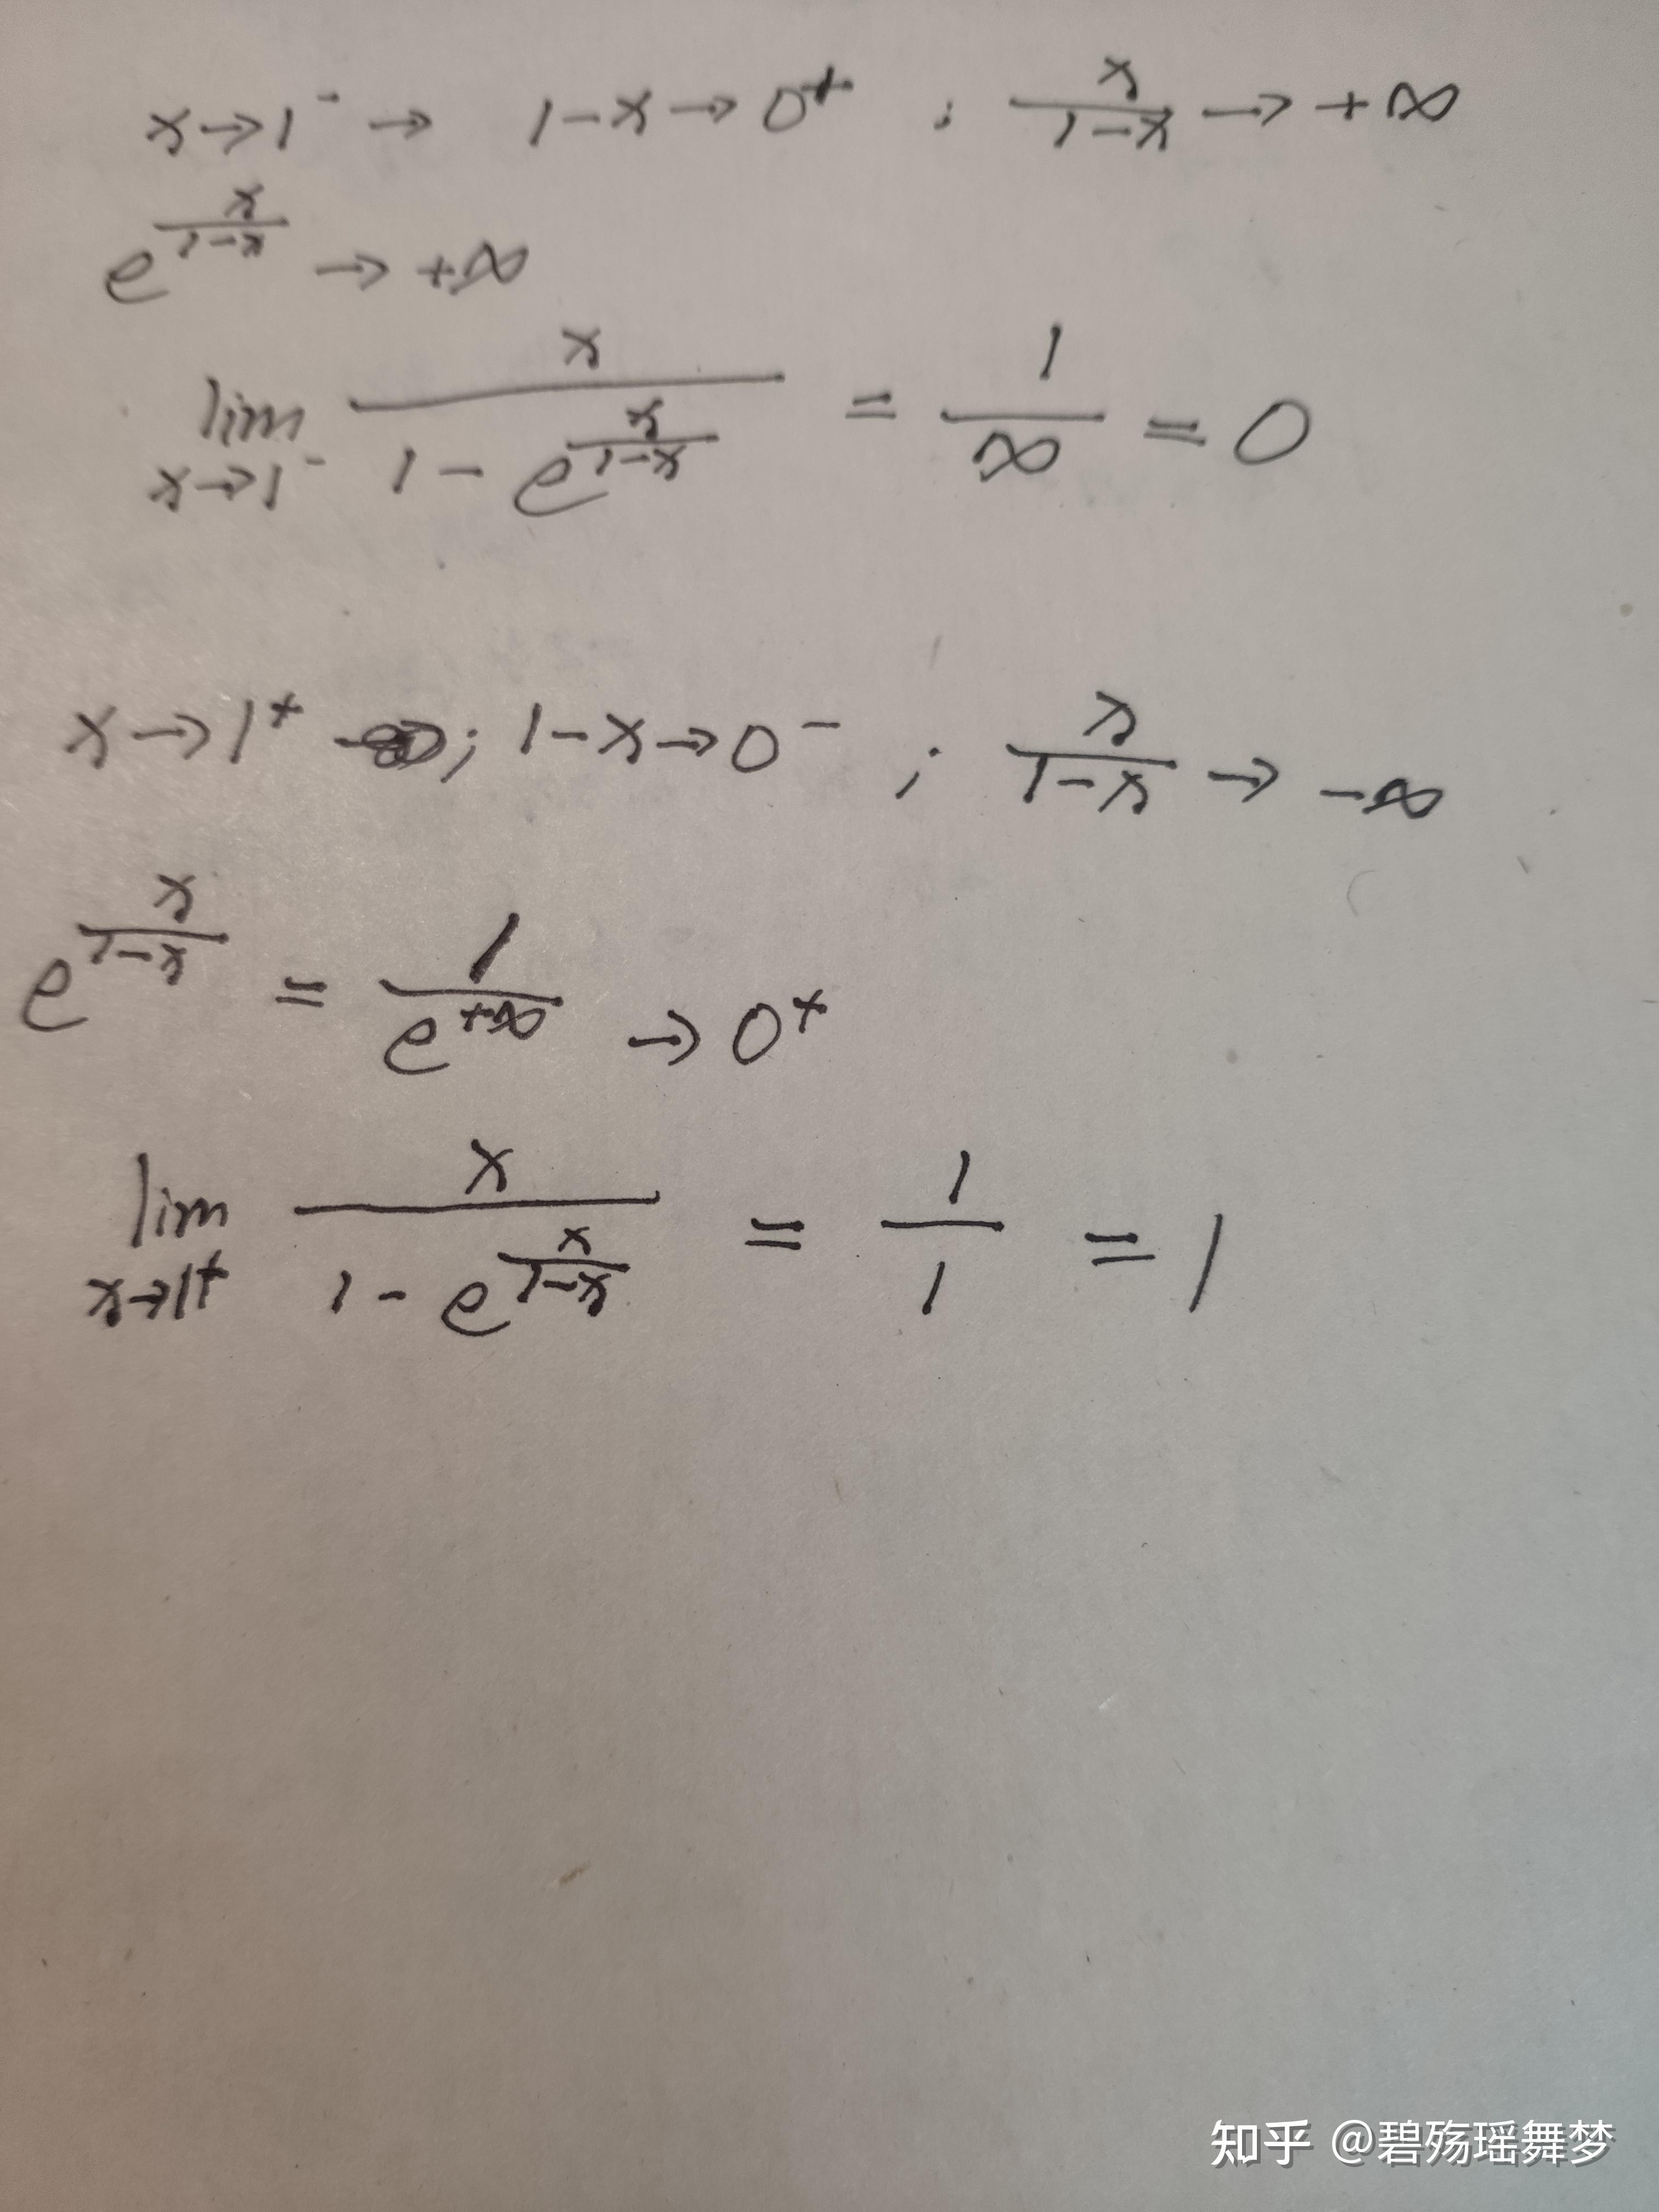 x→1⁻ → 1-x→0⁺ ; x/(1-x) → +∞
e^(x/(1-x)) → +∞
lim x→1⁻ x/(1-e^(x/(1-x))) = 1/∞ = 0
x→1⁺ ; 1-x→0⁻ ; x/(1-x) → -∞
e^(x/(1-x)) = 1/e^(+∞) → 0⁺
lim x→1⁺ x/(1-e^(x/(1-x))) = 1/1 = 1
知乎 @碧殇瑶舞梦